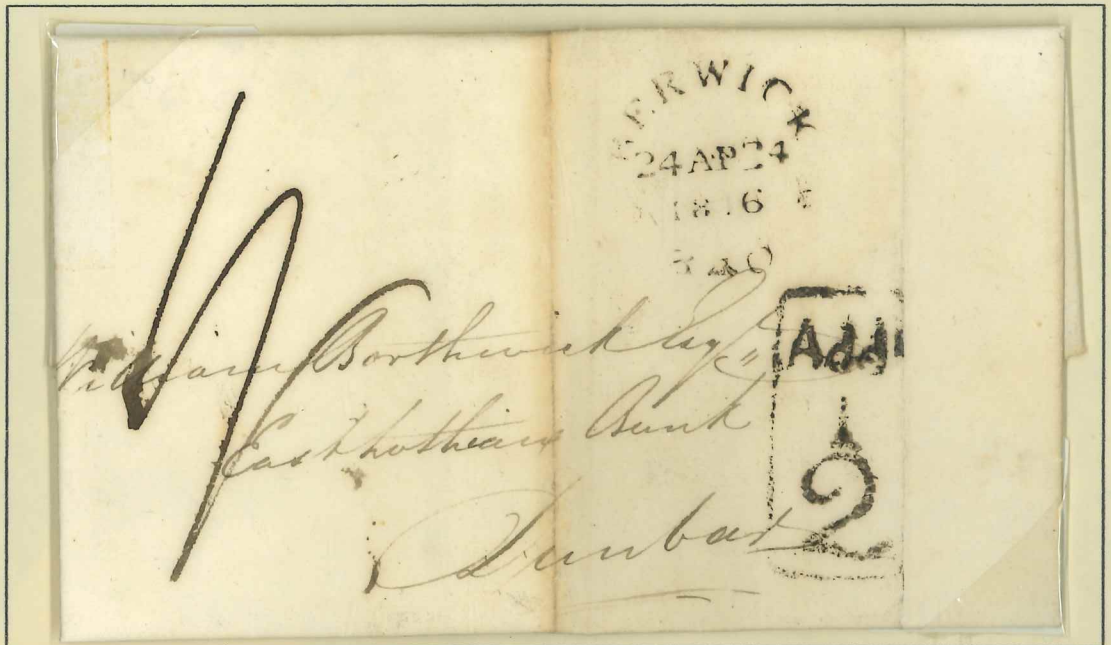 BERWICK
24 AP 24
340
William Borthwick Esqr
East Lothian Bank
Dunbar
Addl
1/2